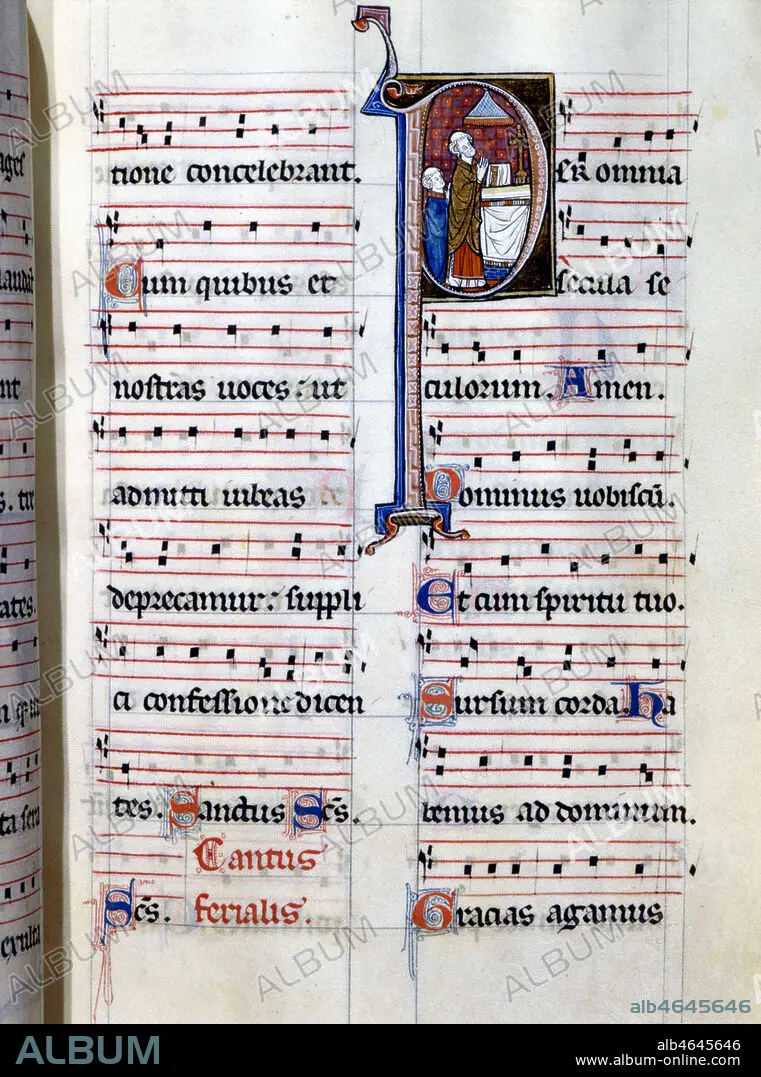 tione concelebrant.
Cum quibus et
nostras uoces : ut
admitti iubeas
deprecamur : suppli
ci confessione dicen
tes. Sanctus Sc̄s.
Cantus
Sc̄s. ferialis.
PER omnia
secula se
culorum. Amen.
Dominus uobiscū.
Et cum spiritu tuo.
Sursum corda. Ha
bemus ad dominum.
Gracias agamus
alb4645646
ALBUM
alb4645646
www.album-online.com